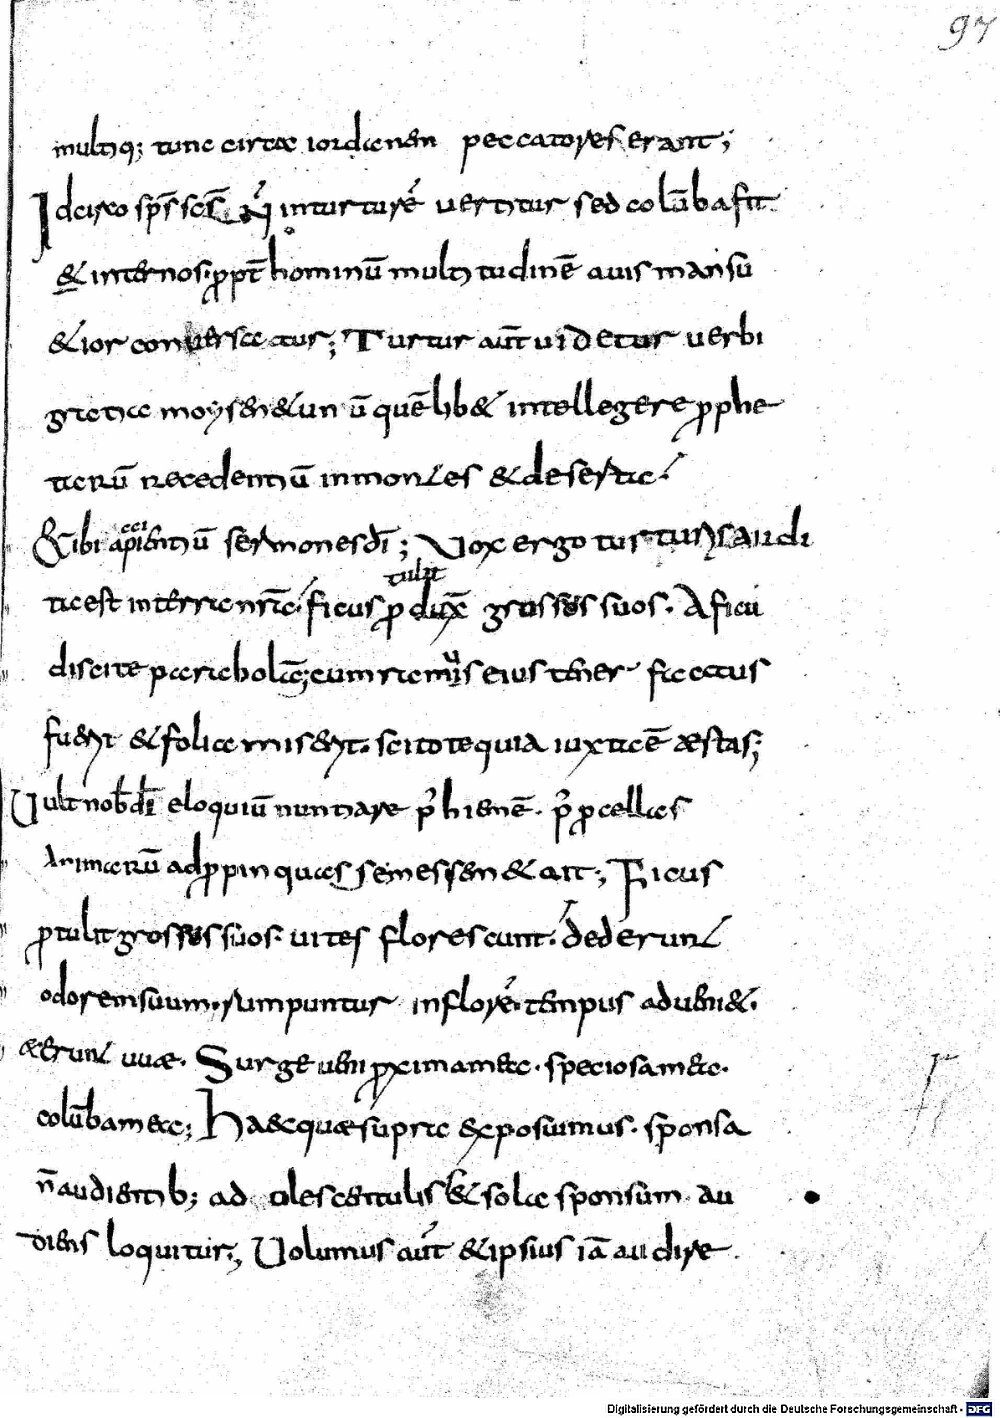 97
multiq; tunc circa iordanen peccatores erant;
Idcirco sps scs non in turturē vertitur sed colūba fit
& inter nos ppt hominū multitudinē avis mansu
& ior conversatur; Turtur aut videtur verbi
gratia moysen & un ū quēlib& intellegere pphe
tarū recedentiū in montes & deserta
& ibi accipientiū sermones di; Vox ergo turturis audi
ta est in terra nra. ficus p dux tulit grossos suos. A ficu
discite parabolā; cum ramus eius tener factus
fuerit & folia miserit. scitote quia iuxta ē æstas;
Vult nob di eloquiū nuntiare p hiemē. p pcellas
animarū adppinquasse messem & ait; Ficus
ptulit grossos suos. vites florescunt. dederunt
odorem suum. rumpuntur in florē. tempus adveni&.
& erunt uvæ. Surge veni pxima mea. speciosa mea.
colūba mea; Haec quæ supra exposuimus. sponsa
n audientib; adolescentulis & sola sponsum au
diens loquitur; Volumus aut & ipsius iā audire
Digitalisierung gefördert durch die Deutsche Forschungsgemeinschaft - DFG